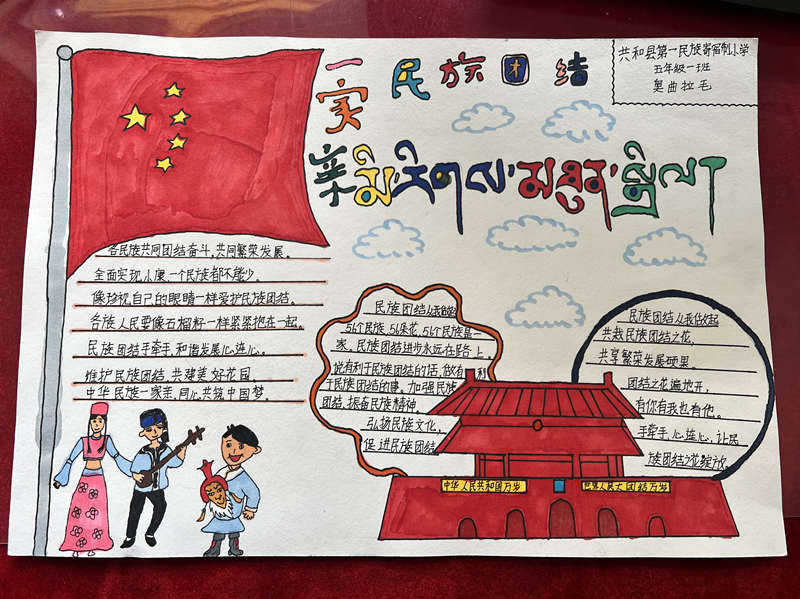 共和县第一民族寄宿制小学
五年级一班
昊曲拉毛
民族团结
一
家
亲
མི་རིགས་མཐུན་སྒྲིལ།
各民族共同团结奋斗,共同繁荣发展。
全面实现小康,一个民族都不能少。
像珍视自己的眼睛一样爱护民族团结。
各族人民要像石榴籽一样紧紧抱在一起。
民族团结手牵手,和谐发展心连心。
维护民族团结,共建美好花园。
中华民族一家亲,同心共筑中国梦。
民族团结从我做起
56个民族,56朵花,56个民族是一
家,民族团结进步永远在路上,
说有利于民族团结的话,做有利
于民族团结的事。加强民族
团结,振奋民族精神。
弘扬民族文化,
促进民族团结
民族团结从我做起
共栽民族团结之花,
共享繁荣发展硕果。
团结之花遍地开,
有你有我也有他。
手牵手,心连心,让民
族团结之花绽放。
中华人民共和国万岁
世界人民大团结万岁